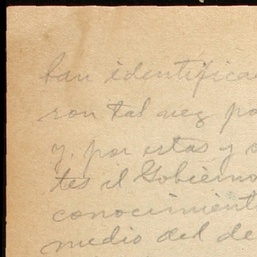 ban identifica
ron tal vez po
y, por estas y o
tes el Gobierno
conocimient
medio del de